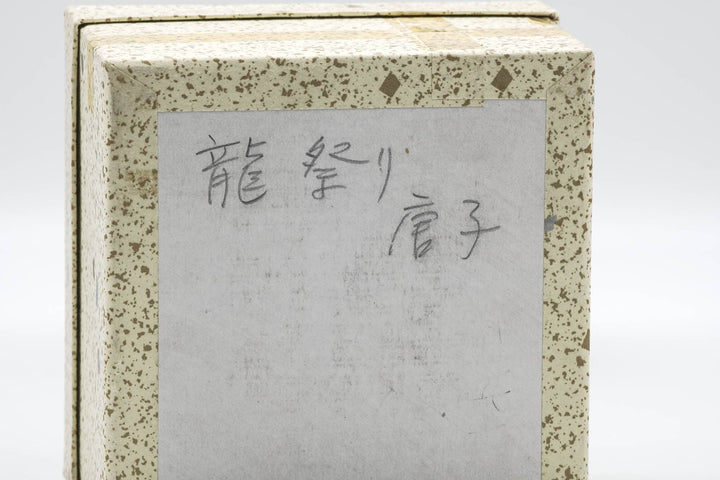 龍祭り
唐子